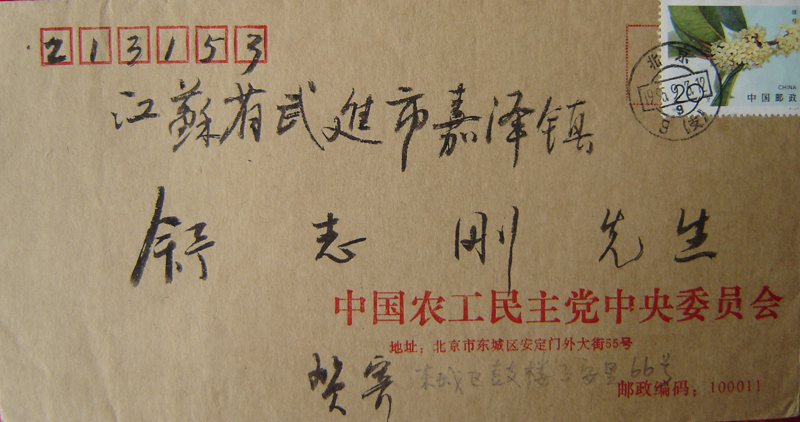 213153
江蘇省武進市嘉泽镇
舒志刚先生
中国农工民主党中央委员会
地址：北京市东城区安定门外大街55号
贺寄
东城区鼓楼
66号
邮政编码：100011
CHINA
中国邮政
20
北京